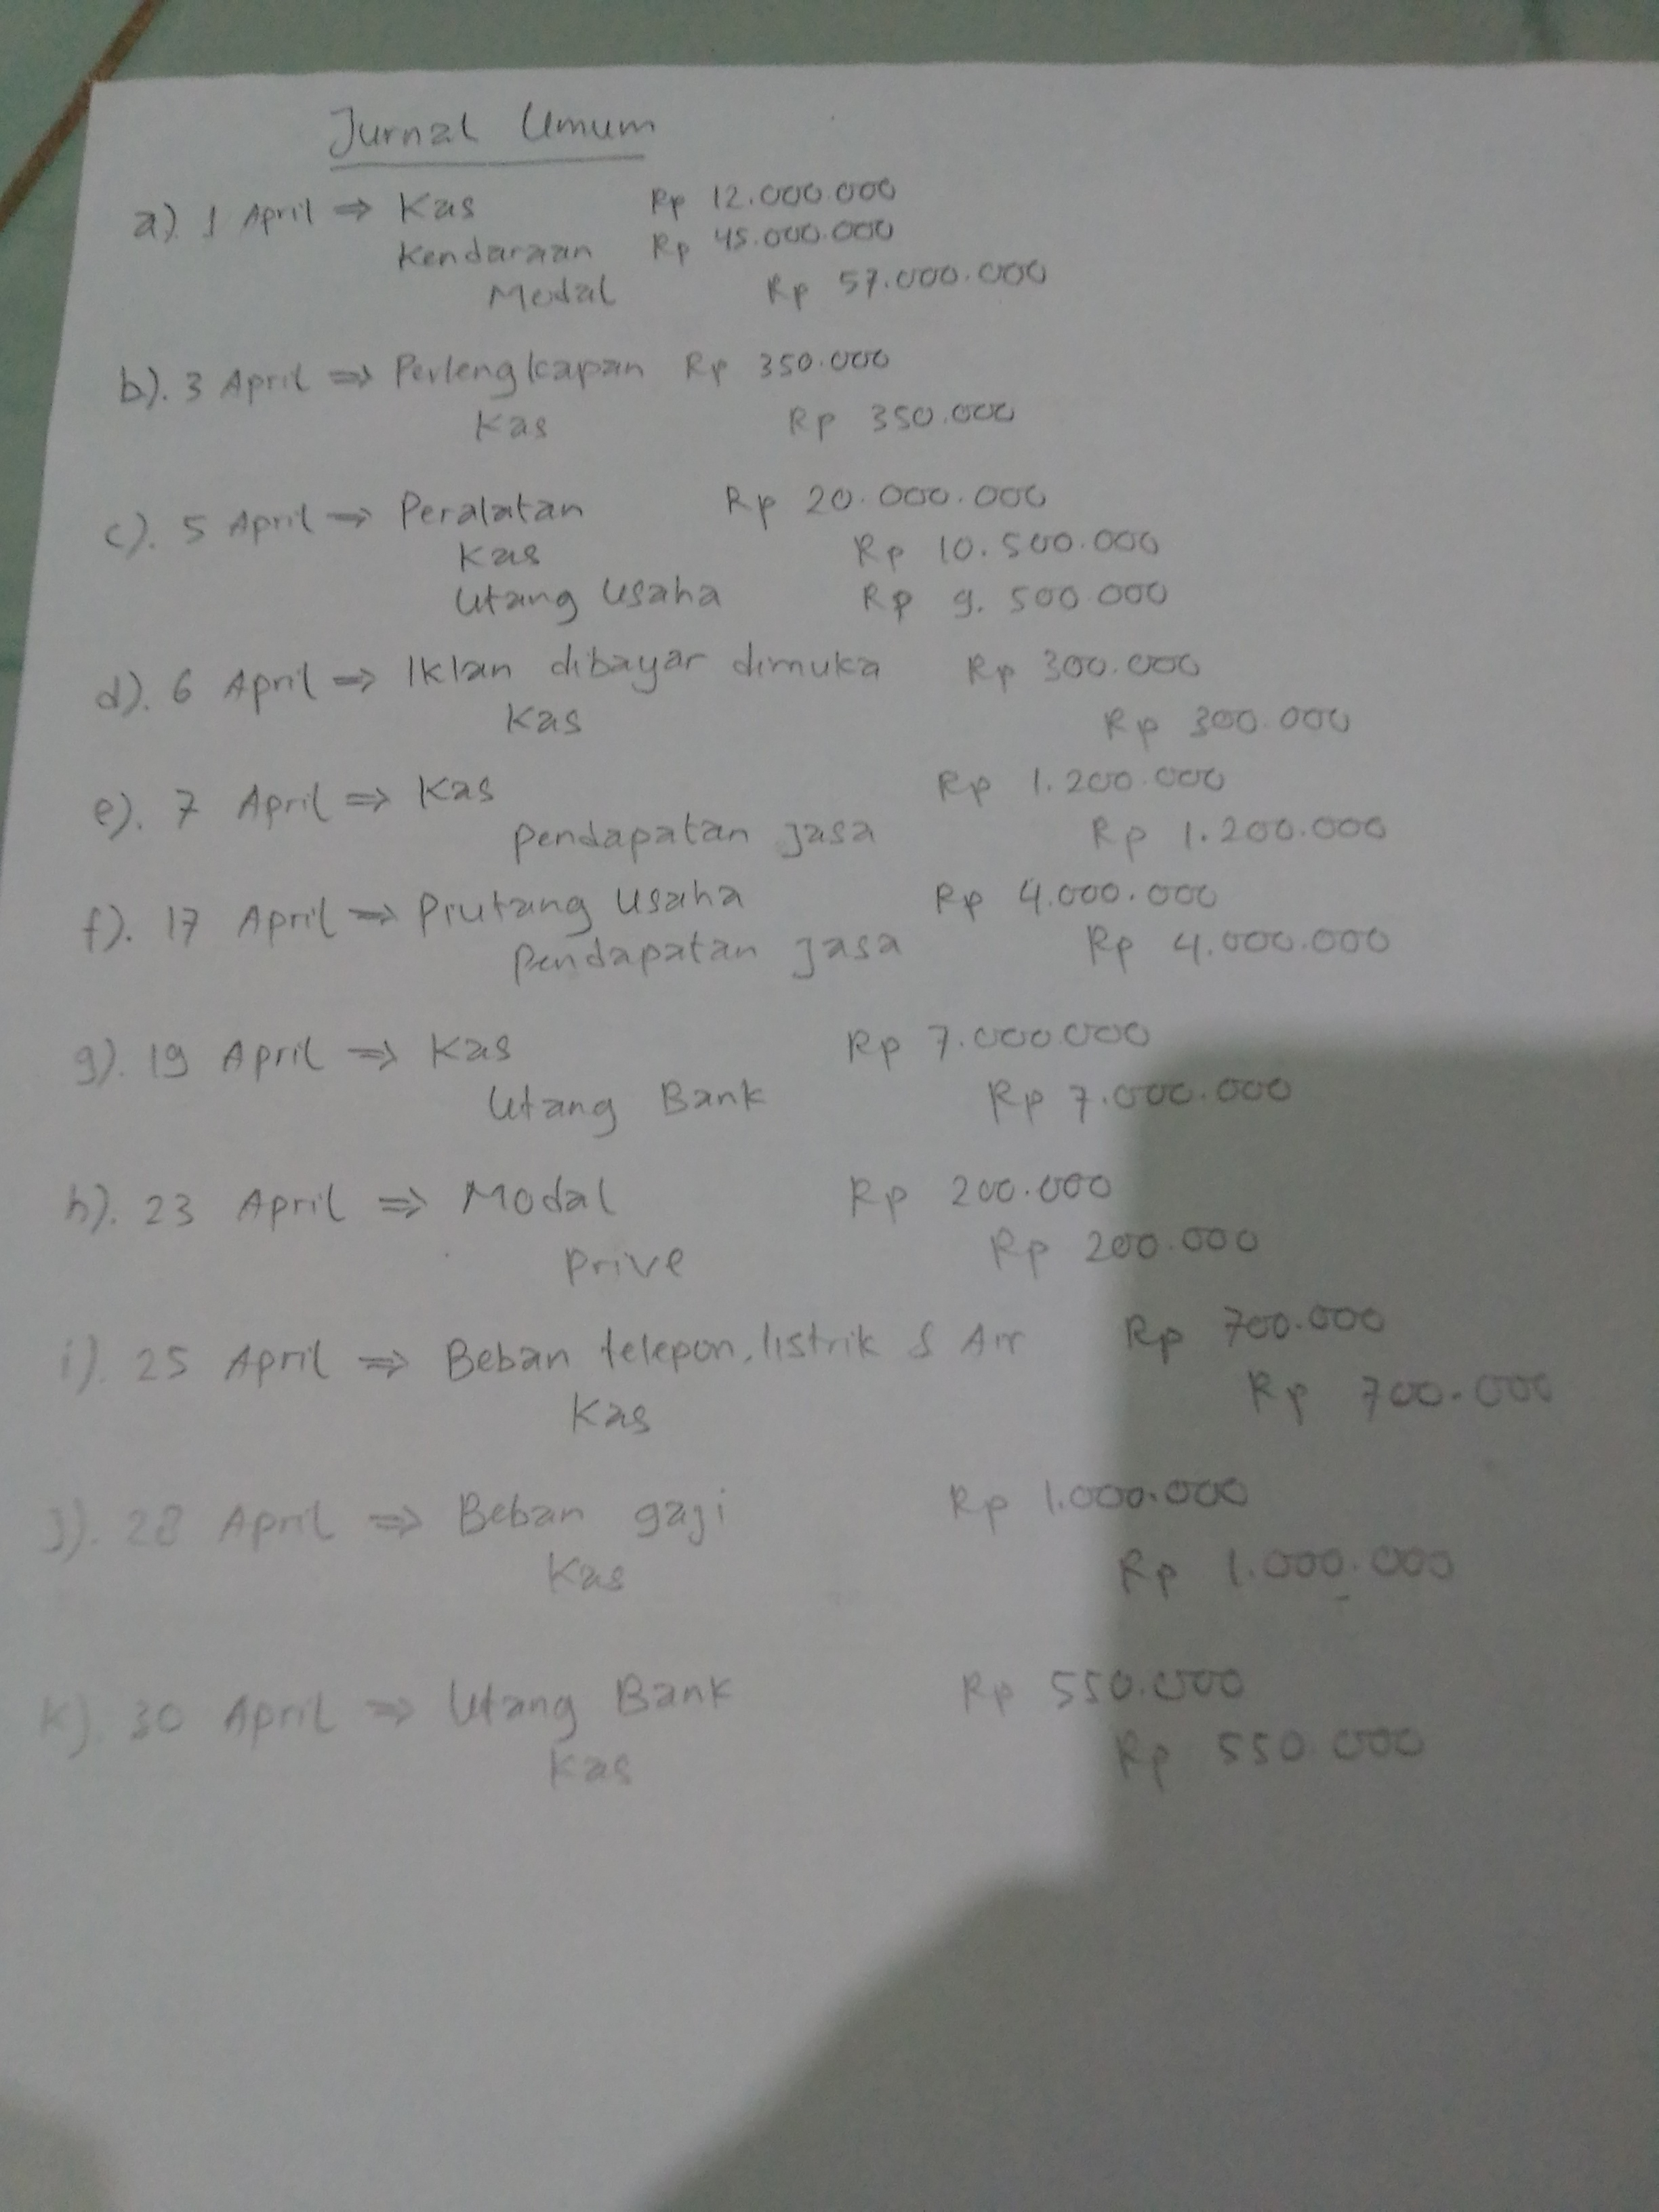 Jurnal Umum
a). 1 April ⇒ Kas Rp 12.000.000
Kendaraan Rp 45.000.000
Modal Rp 57.000.000
b). 3 April ⇒ Perlengkapan Rp 350.000
Kas Rp 350.000
c). 5 April ⇒ Peralatan Rp 20.000.000
Kas Rp 10.500.000
Utang Usaha Rp 9.500.000
d). 6 April ⇒ Iklan dibayar dimuka Rp 300.000
Kas Rp 300.000
e). 7 April ⇒ Kas Rp 1.200.000
Pendapatan jasa Rp 1.200.000
f). 17 April ⇒ Piutang usaha Rp 4.000.000
Pendapatan jasa Rp 4.000.000
g). 19 April ⇒ Kas Rp 7.000.000
Utang Bank Rp 7.000.000
h). 23 April ⇒ Modal Rp 200.000
Prive Rp 200.000
i). 25 April ⇒ Beban telepon, listrik & Air Rp 700.000
Kas Rp 700.000
j). 28 April ⇒ Beban gaji Rp 1.000.000
Kas Rp 1.000.000
k). 30 April ⇒ Utang Bank Rp 550.000
Kas Rp 550.000